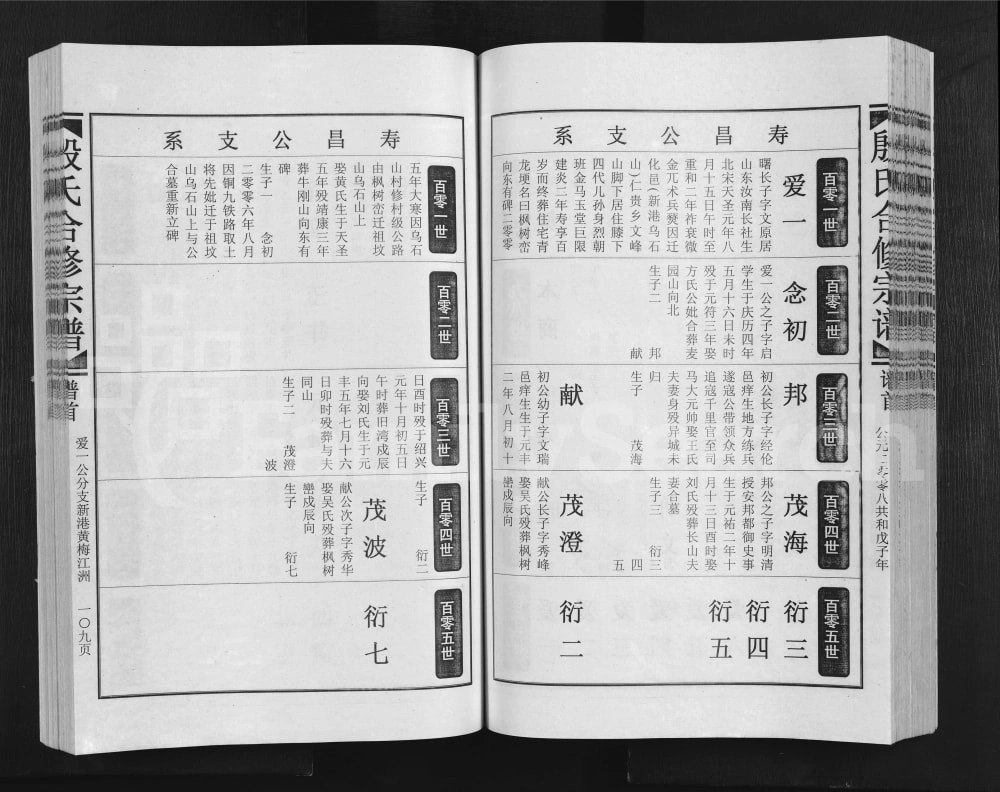 殷氏合修宗谱
谱首
公元二零零八共和戊子年
寿昌公支系
百零一世
爱一
曙长子字文原居
山东汝南长社生
北宋天圣元年八
月十五日午时至
重和二年祚衰微
金兀术兵燹因迁
化邑(新港乌石
山)仁贵乡文峰
山脚下居住膝下
四代儿孙身烈朝
班金马玉堂巨限
建炎二年寿亨百
岁而终葬住宅青
龙埂名曰枫树峦
向东有碑二零零
百零二世
念初
爱一公之子字启
学生于庆历四年
五月十六日未时
殁于元符三年娶
方氏公妣合葬麦
园山向北
生子二 邦
献
百零三世
邦
初公长子字经伦
邑庠生地方练兵
遂寇公带领众兵
追寇千里官至司
马大元帅娶王氏
夫妻身殁异城未
归
生子 茂海
献
初公幼子字文瑞
邑庠生生于元丰
二年八月初十
百零四世
茂海
邦公之子字明清
授安邦都御史事
生于元祐二年十
月十三日酉时娶
刘氏殁葬长山夫
妻合墓
生子三 衍三
四
五
茂澄
献公长子字秀峰
娶吴氏殁葬枫树
峦戍辰向
百零五世
衍三
衍四
衍五
衍二
寿昌公支系
百零一世
五年大寒因乌石
山村修村级公路
由枫树峦迁祖坟
山乌石山上
娶黄氏生于天圣
五年殁靖康三年
葬牛刚山向东有
碑
生子一 念初
二零零六年八月
因铜九铁路取土
将先妣迁于祖坟
山乌石山上与公
合墓重新立碑
百零二世
百零三世
日酉时殁于绍兴
元年十月初五日
午时葬旧湾戍辰
向娶刘氏生于元
丰五年七月十六
日卯时殁葬与夫
同山
生子二 茂澄
波
百零四世
生子 衍二
茂波
献公次子字秀华
娶吴氏殁葬枫树
峦戍辰向
生子 衍七
百零五世
衍七
殷氏合修宗谱
谱首
爱一公分支新港黄梅江洲
一〇九页